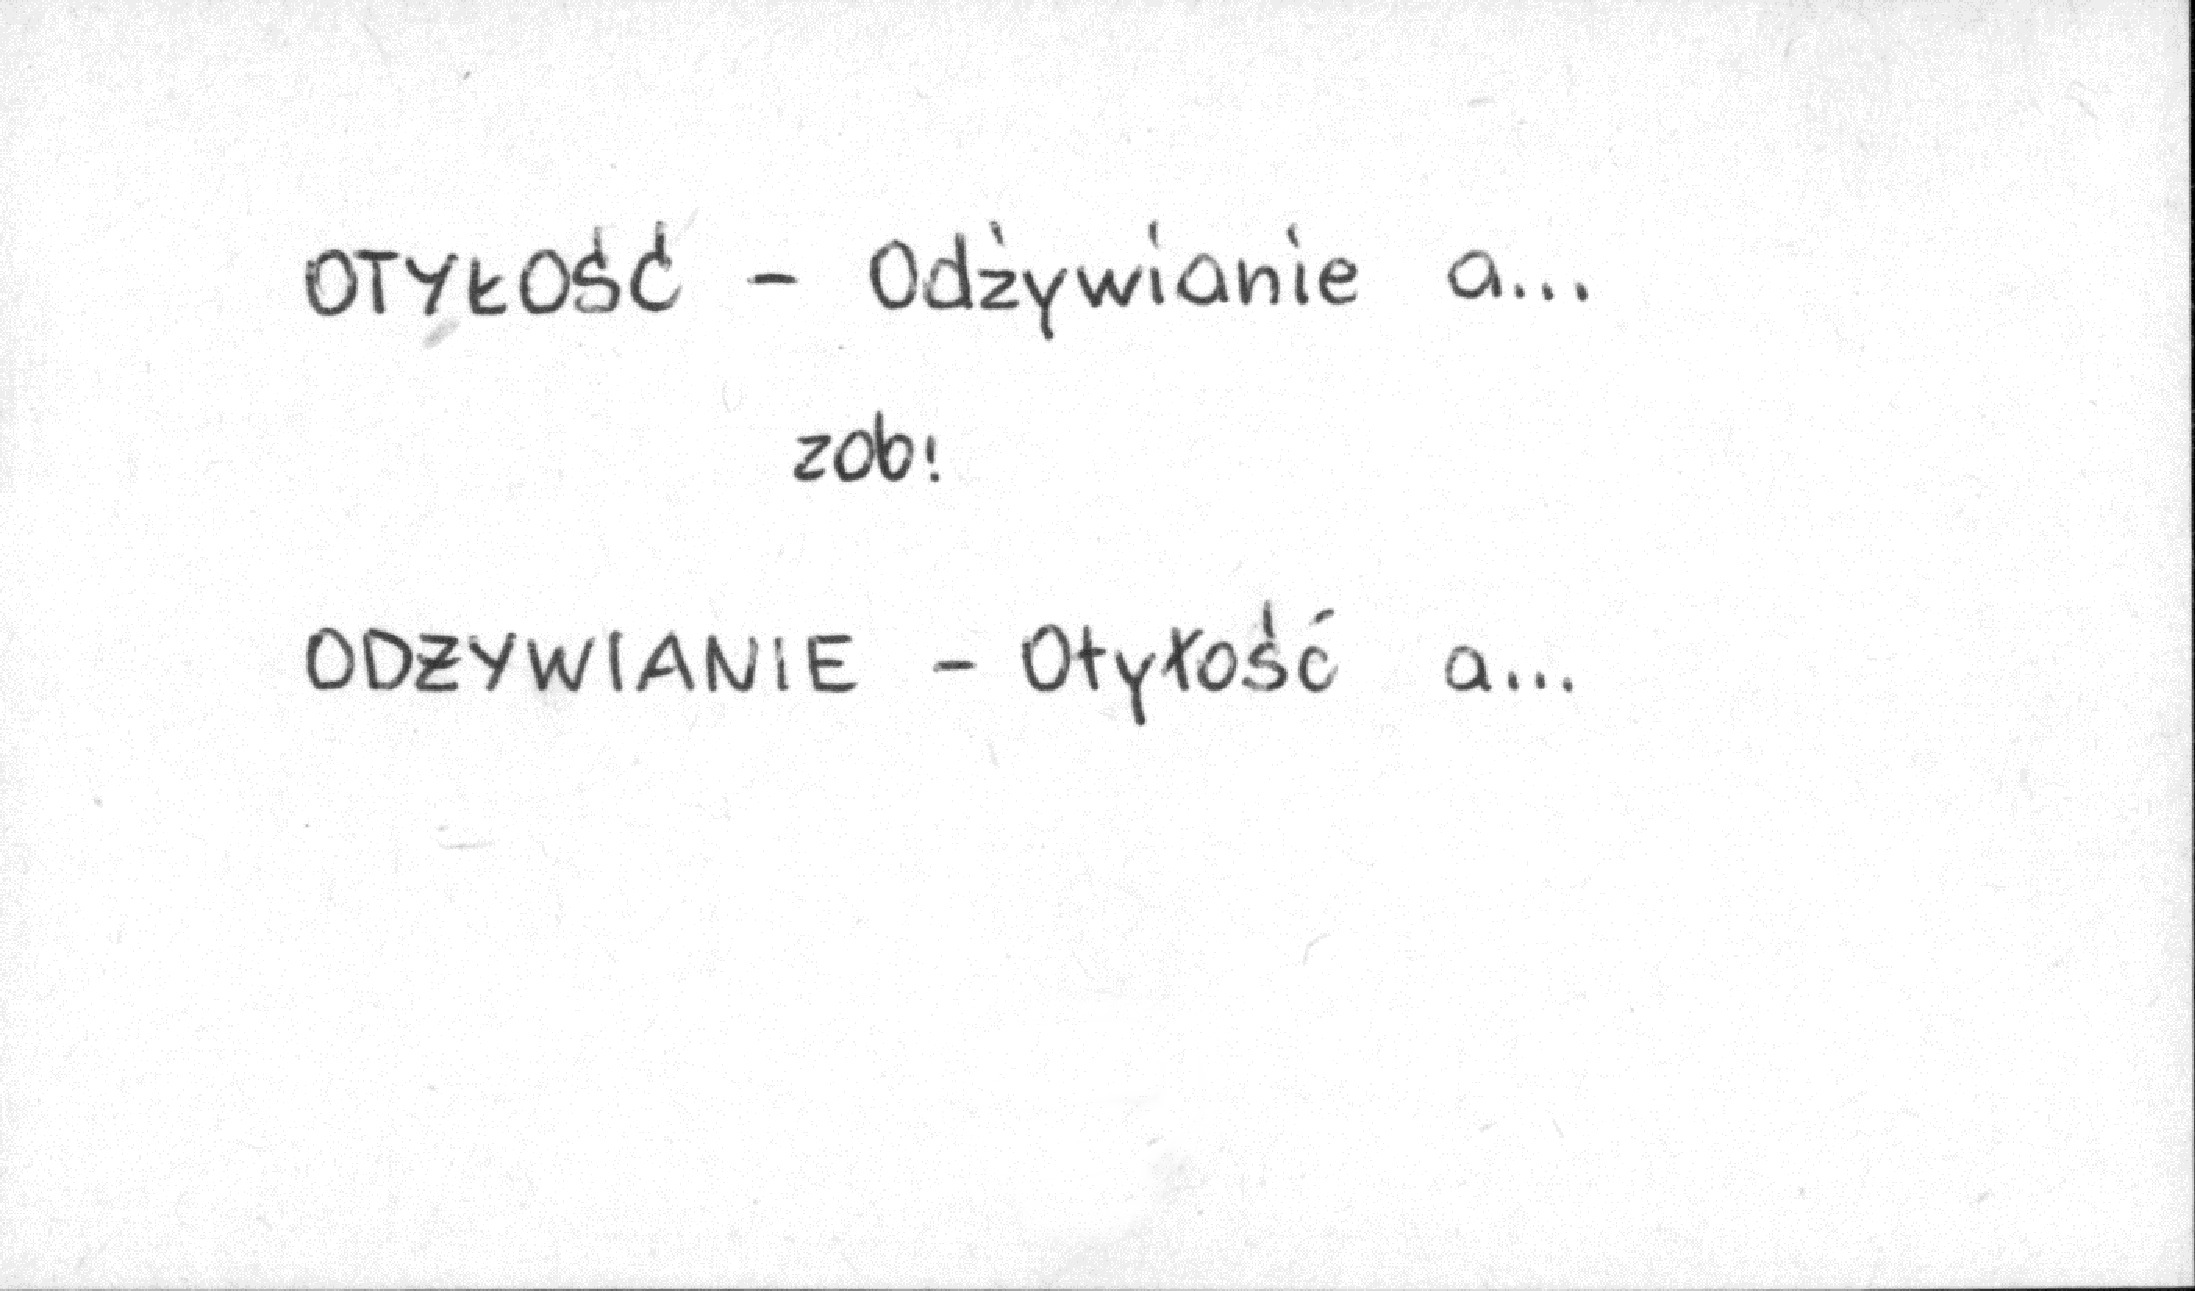 OTYŁOŚĆ - Odżywianie a...
zob!
ODŻYWIANIE - Otyłość a...